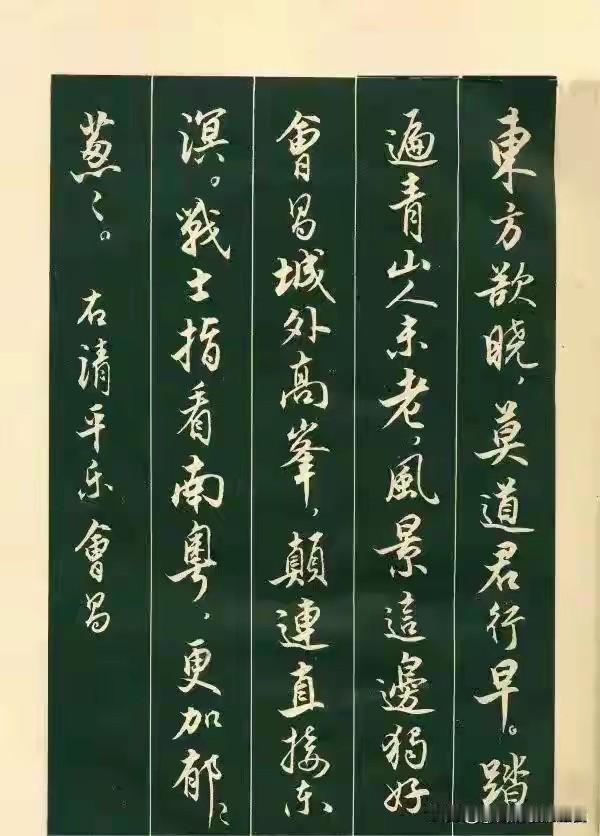 東方欲晓，莫道君行早。踏
遍青山人未老，風景這邊獨好
會昌城外高峯，顛連直接东
溟。戰士指看南粤，更加郁〻
葱〻。 右清平乐會昌